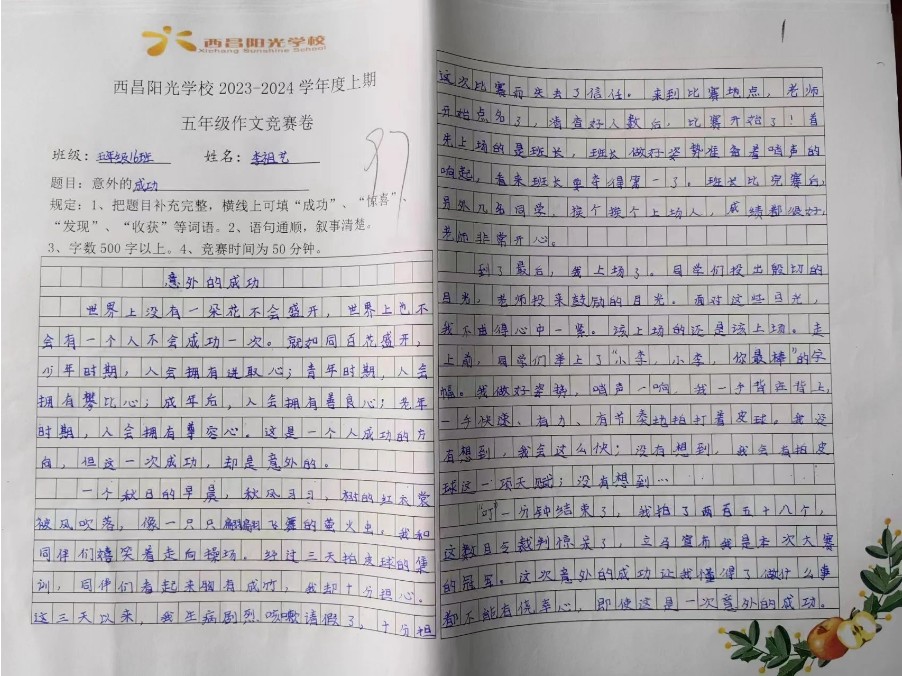 西昌阳光学校
Xichang Sunshine School
西昌阳光学校 2023-2024 学年度上期
五年级作文竞赛卷
班级：五年级16班 姓名：李祖艺
题目：意外的成功
规定：1、把题目补充完整，横线上可填“成功”、“惊喜”、
“发现”、“收获”等词语。2、语句通顺，叙事清楚。
3、字数 500 字以上。4、竞赛时间为 50 分钟。
意外的成功
世界上没有一朵花不会盛开，世界上也不
会有一个人不会成功一次。就如同百花盛开，
少年时期，人会拥有进取心；青年时期，人会
拥有攀比心；成年后，人会拥有善良心；老年
时期，人会拥有尊容心。这是一个人成功的方
向，但这一次成功，却是意外的。
一个秋日的早晨，秋风习习，树的红衣裳
被风吹落，像一只只翩翩飞舞的萤火虫，我和
同伴们嬉笑着走向操场。经过三天拍皮球的集
训，同伴们看起来胸有成竹，我却十分担心。
这三天以来，我生病剧烈咳嗽请假了，十分担
1
这次比赛而失去了信任。来到比赛地点，老师
开始点名了，清查好人数后，比赛开始了！首
先上场的是班长，班长做好姿势准备着哨声的
响起，看来班长要夺得第一了。班长比完赛后，
另外几名同学，挨个挨个上场人，成绩都很好，
老师非常开心。
到了最后，我上场了。同学们投出殷切的
目光，老师投来鼓励的目光。面对这些目光，
我不由得心中一紧。该上场的还是该上场。走
上前，同学们举上了“小李，小李，你最棒”的字
幅。我做好姿势，哨声一响，我一手背在背上，
一手快速、有力、有节奏地拍打着皮球。我没
有想到，我会这么快；没有想到，我会有拍皮
球这一项天赋；没有想到…
“叮”一分钟结束了，我拍了两百五十八个，
这数目令裁判惊呆了，立马宣布我是本次大赛
的冠军。这次意外的成功让我懂得了做什么事
都不能有侥幸心，即使这是一次意外的成功。